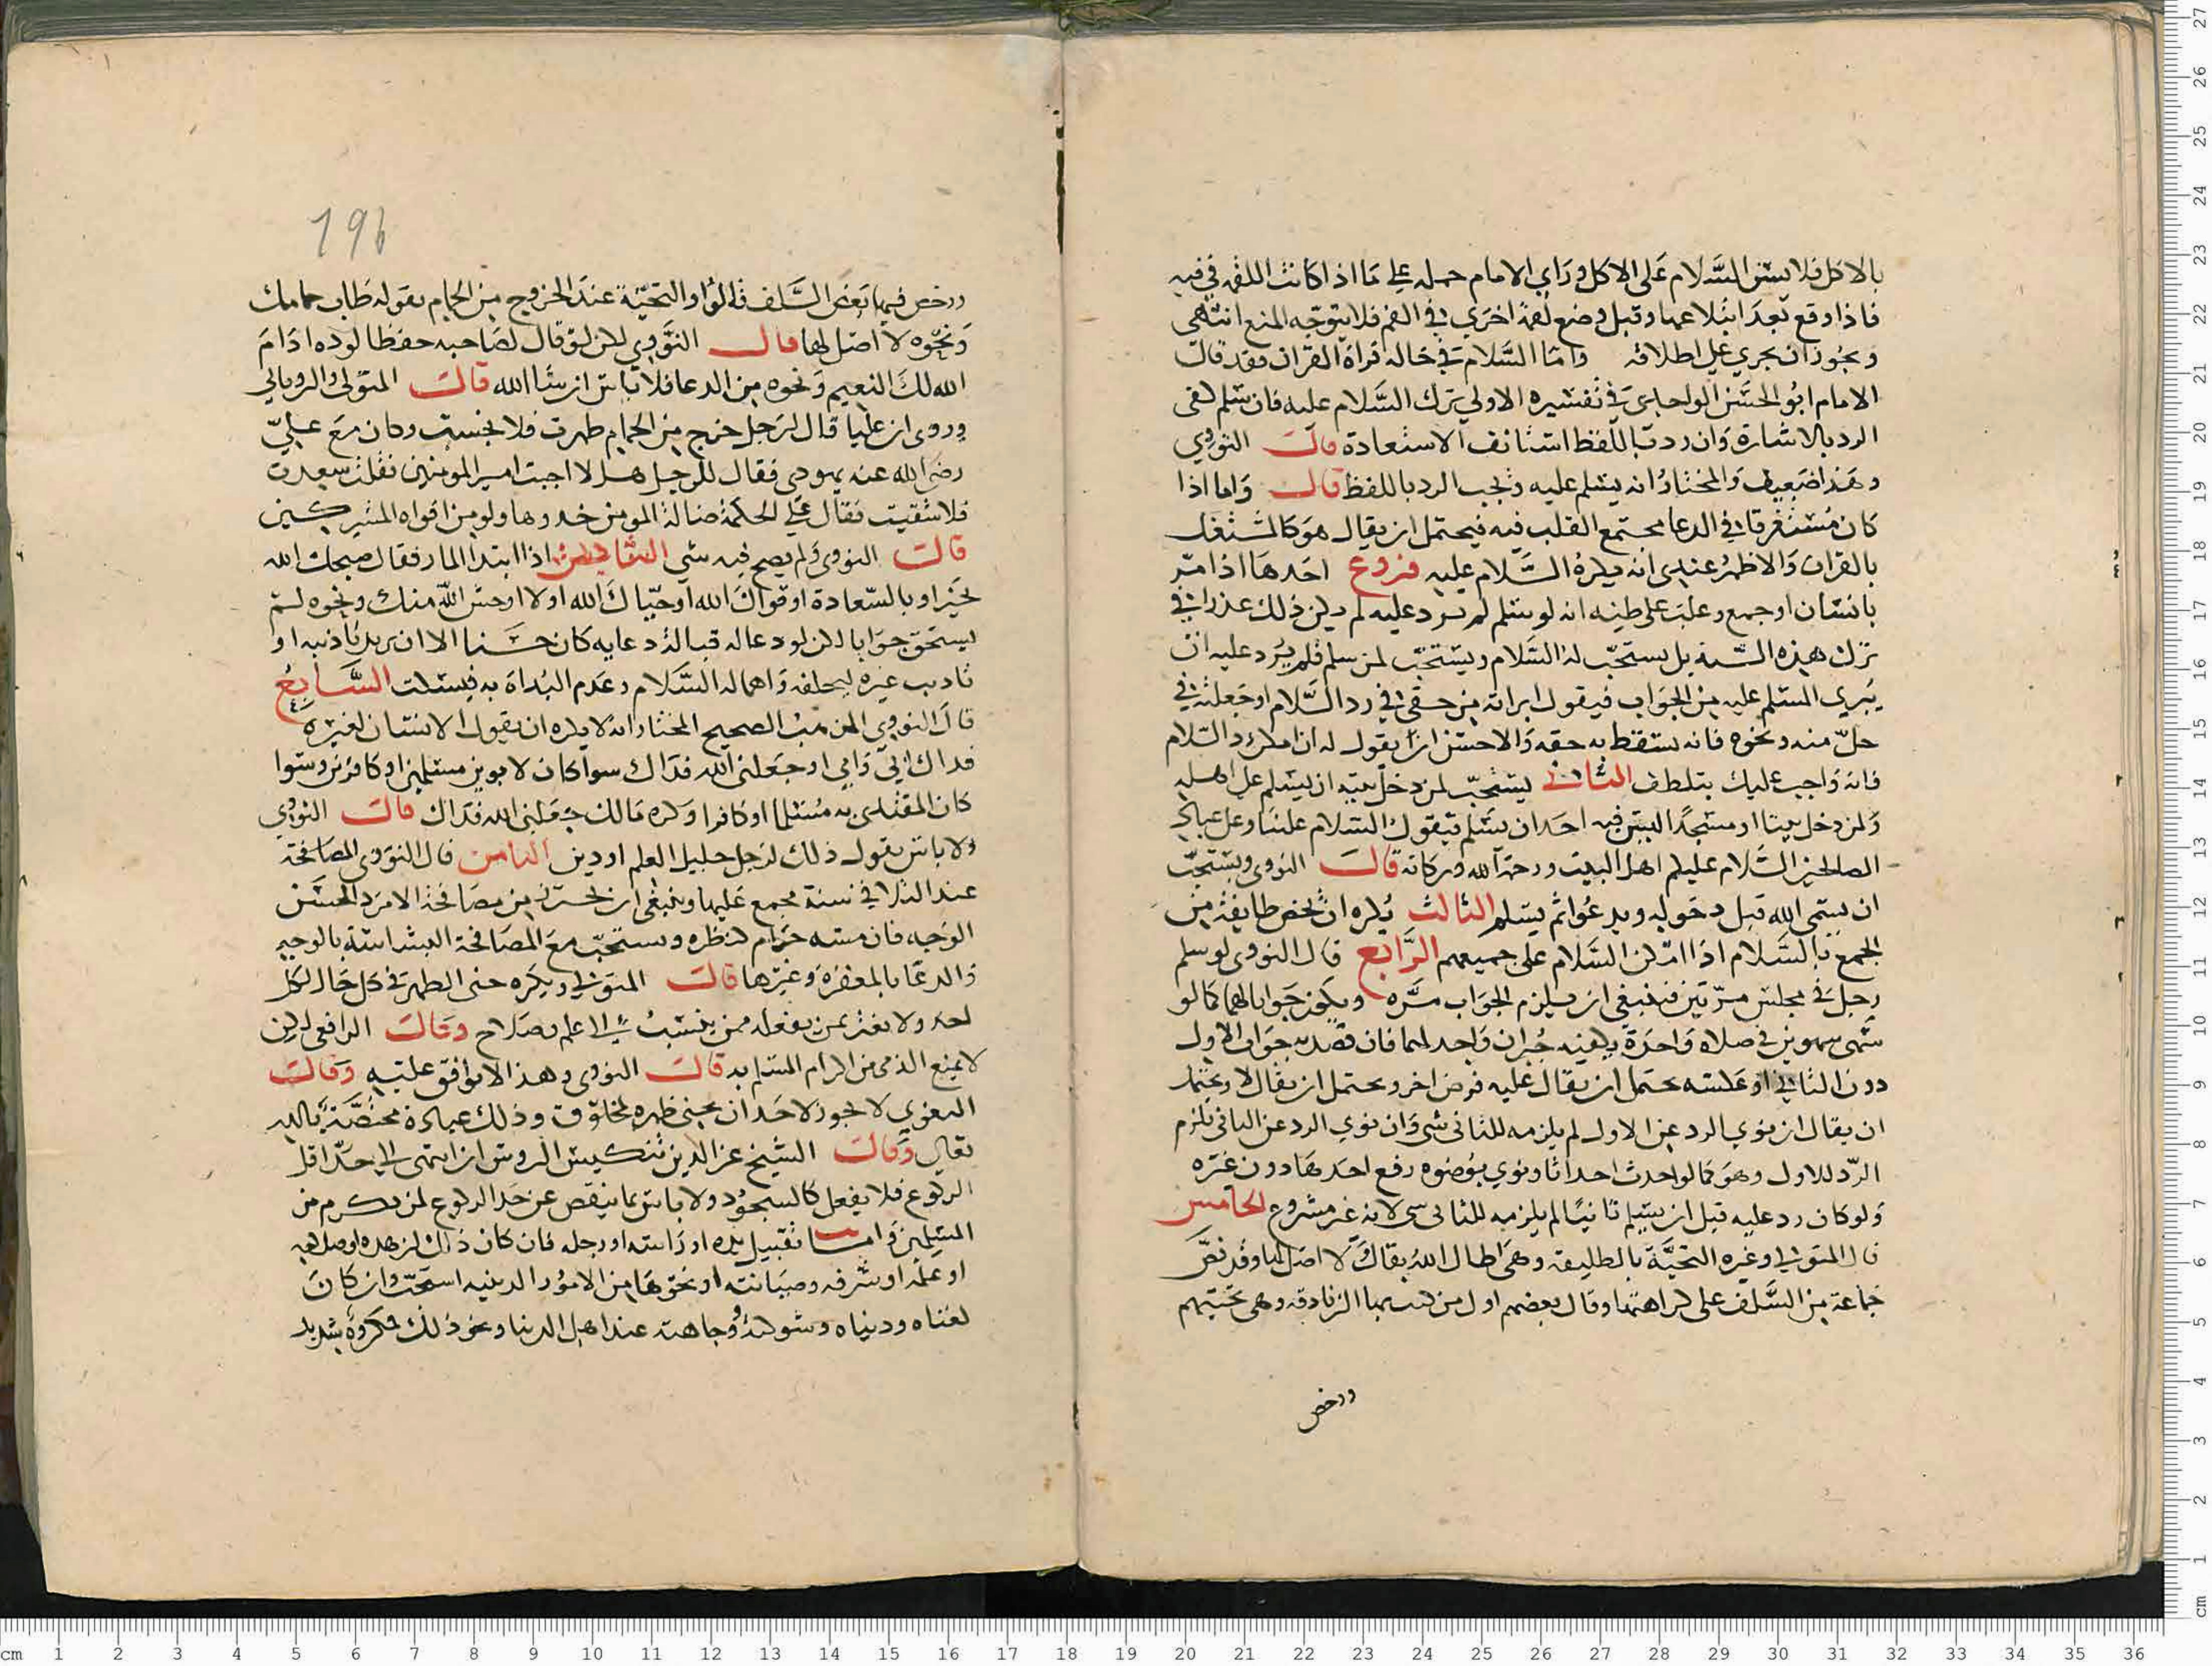 بالاكل فلا يسن السلام على الاكل وراي الامام حمله على ما اذا كانت اللقمه في فيه
فاذا وقع بعد ابتلاعها وقبل وضع لقمة اخرى في الفم فلا يتوجه المنع انتهى
ويجوز ان يجري على اطلاقه واما السلام في حالة قراة القران فقد قال
الامام ابو الحسن الواحدي في تفسيره الاولى ترك السلام عليه فان سلم كفى
الرد بالاشارة وان رد باللفظ استانف الاستعادة قال النووي
وهذا ضعيف والمختار انه يسلم عليه ويجب الرد باللفظ قال واما اذا
كان مستغرقا في الدعا مجتمع القلب فيه فيحتمل ان يقال هو كالمشتغل
بالقران والاظهر عندي انه يكره السلام عليه فروع احدها اذا مر
بانسان او جمع وغلب على ظنه انه لو سلم لم يرد عليه لم يكن ذلك عذرا في
ترك هذه السنة بل يستحب له السلام ويستحب لمن سلم فلم يرد عليه ان
يبرى المسلم عليه من الجواب فيقول ابراته من حقي في رد السلام او جعلته في
حل منه ونحوه فانه يسقط به حقه والاحسن ان يقول له ان امكن رد السلام
فانه واجب عليك بتلطف الثاني يستحب لمن دخل بيته ان يسلم على اهله
ولمن دخل بيتا او مسجدا ليس فيه احد ان يسلم فيقول السلام علينا وعلى عباد
الصالحين السلام عليكم اهل البيت ورحمة الله وبركاته قال النووي ويستحب
ان يسمى الله قبل دخوله ويدعو ثم يسلم الثالث يكره ان يخص طايفة من
الجمع بالسلام اذا امكن السلام على جميعهم الرابع قال النووي لو سلم
رجل في مجلس مرتين فينبغي ان يلزم الجواب مره ويكون جوابا لهما كما لو
سهى سهوين في صلاه واحدة يكفيه جبران واحد لهما فان قصد به جواب الاول
دون الثاني او عكسه يحتمل ان يقال عليه فرض اخر ويحتمل ان يقال لا ويحتمل
ان يقال ان نوي الرد عن الاول لم يلزمه للثاني شي وان نوي الرد عن الثاني لزم
الرد للاول وهو كما لو احدث احداثا ونوي بوضوه رفع احدها دون غيره
ولو كان رد عليه قبل ان يسلم ثانيا لم يلزمه للثاني شي لانه غير مشروع الخامس
قال المتولي وغيره التحية بالطليقة وهي اطال الله بقاك لا اصل لها وقد نص
جماعة من السلف على كراهتها وقال بعضهم اول من كتب بها الزنادقه وهي تحيتهم
ورخص
196
ورخص فيها بعض السلف قالوا والتحية عند الخروج من الحمام بقوله طاب حمامك
ونحوه لا اصل لها قال النووي لكن لو قال لصاحبه حفظا لوده ادام
الله لك النعيم ونحوه من الدعا فلا باس ان شا الله قال المتولي والروياني
وروي ان عليا قال لرجل خرج من الحمام طهرت فلا نجست وكان مع علي
رضي الله عنه يهودي فقال للرجل هلا اجبت امير المومنين فقلت سعدت
فلا شقيت فقال علي الحكمة ضالة المومن خذوها ولو من افواه المشركين
قال النووي ولم يصح فيه شي السادس اذا ابتدا المار فقال صبحك الله
بخير او بالسعادة او قواك الله او حياك الله او لا اوحش الله منك ونحوه لم
يستحق جوابا لكن لو دعا له قبالة دعايه كان حسنا الا ان يريد تاديبه او
تاديب غيره لتخلفه واهماله السلام وعدم البداة به فيسكت السابع
قال النووي المذهب الصحيح المختار انه لا يكره ان يقول الانسان لغيره
فداك ابي وامي او جعلني الله فداك سوا كان لابوين مسلمين او كافرين وسوا
كان المفتدى به مسلما او كافرا وكره مالك جعلني الله فداك قال النووي
ولا باس بقول ذلك لرجل جليل العلم او دين الثامن قال النووي المصافحة
عند التلاقي سنة مجمع عليها وينبغي ان يحترز من مصافحة الامرد الحسن
الوجه فان مسه حرام كنظره ويستحب مع المصافحة البشاشة بالوجه
والدعا بالمغفرة وغيرها قال المتولي ويكره حني الظهر في كل حال لكل
احد ولا يغتر بمن يفعله ممن ينسب الى علم وصلاح وقال الرافعي لكن
لا يمنع الذمي من اكرام المسلم به قال النووي وهذا لا يوافق عليه وقال
البغوي لا يجوز لاحد ان يحني ظهره لمخلوق وذلك عبادة مختصة بالله
تعالى وقال الشيخ عز الدين تنكيس الروس ان انتهى الى حد اقل
الركوع فلا يفعل كالسجود ولا باس بما ينقص عن حد الركوع لمن يكرم من
المسلمين واما تقبيل يده او راسه او رجله فان كان ذلك لزهده او صلاحه
او علمه او شرفه وصيانته او نحوها من الامور الدينيه استحب وان كان
لغناه ودنياه وشوكته ووجاهته عند اهل الدنيا ونحو ذلك فمكروه شديد